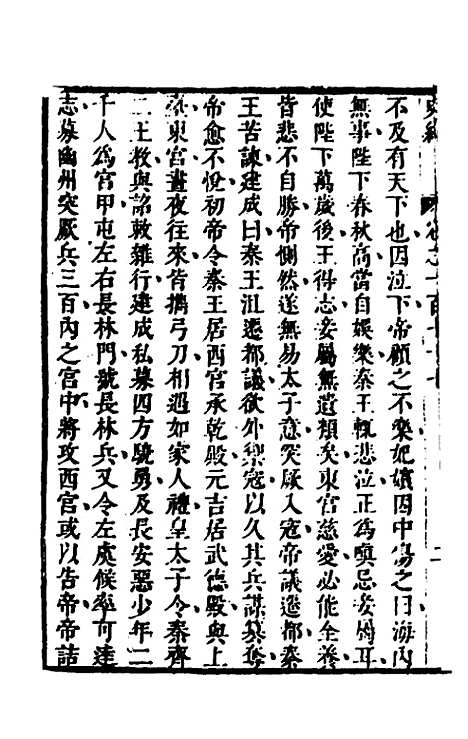 史緯 卷之一百七十七 二
不及有天下也因泣下帝顧之不樂妃嬪因中傷之曰海內
無事陛下春秋高當自娛樂秦王輒悲泣正爲嗔忌妾屬耳
使陛下萬歲後王得志妾屬無遺類矣東宮慈愛必能全養
皆悲不自勝帝惻然遂無易太子意突厥入寇帝議遷都秦
王苦諫建成曰秦王沮遷都議欲外禦寇以久其兵謀篡奪
帝愈不悅初帝令秦王居西宮承乾殿元吉居武德殿與上
臺東宮晝夜往來皆攜弓刀相遇如家人禮皇太子令秦齊
二王教與詔敕雜行建成私募四方驍勇及長安惡少年二
千人爲宮甲屯左右長林門號長林兵又令左虞候率可達
志募幽州突厥兵三百內之宮中將攻西宮或以告帝帝詰